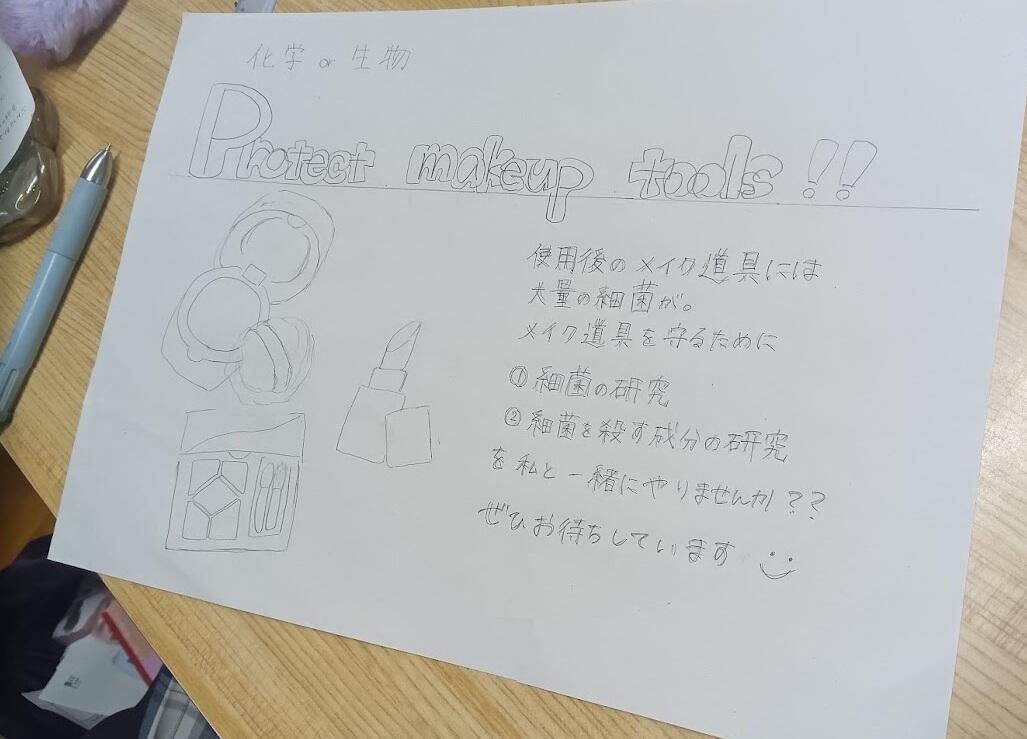 化学 or 生物
Protect makeup tools !!
使用後のメイク道具には
大量の細菌が。
メイク道具を守るために
① 細菌の研究
② 細菌を殺す成分の研究
を私と一緒にやりませんか??
ぜひお待ちしています